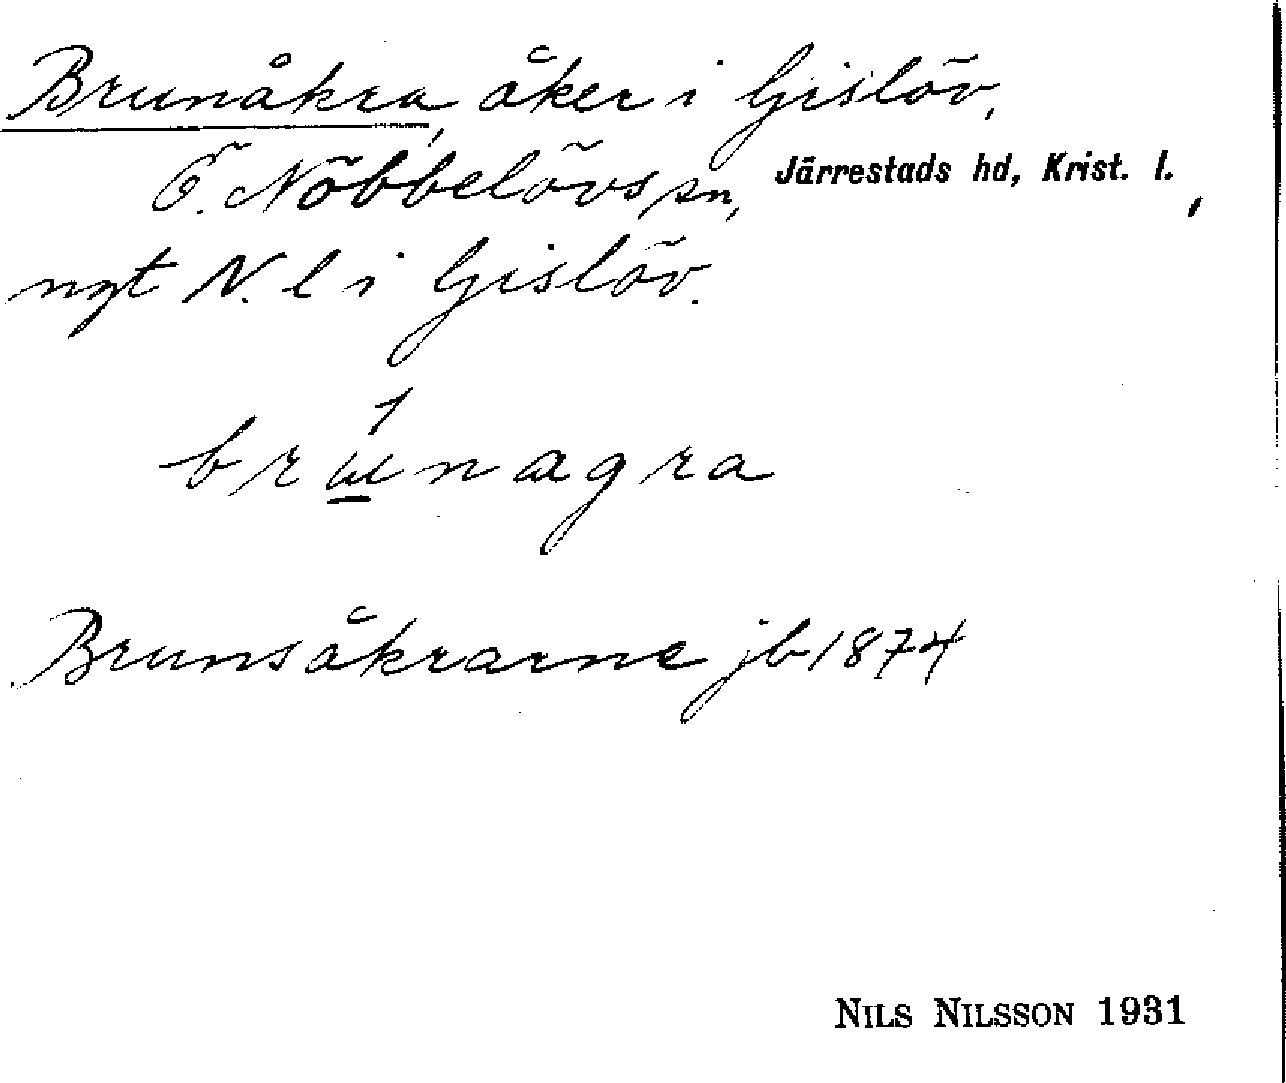 Brunåkra, åker i Gislöv,
Ö. Nöbbelövs sn, Järrestads hd, Krist. l.,
ngt N. l i Gislöv.
brẃnagra
Brunsåkrarne jb 1874
NILS NILSSON 1931